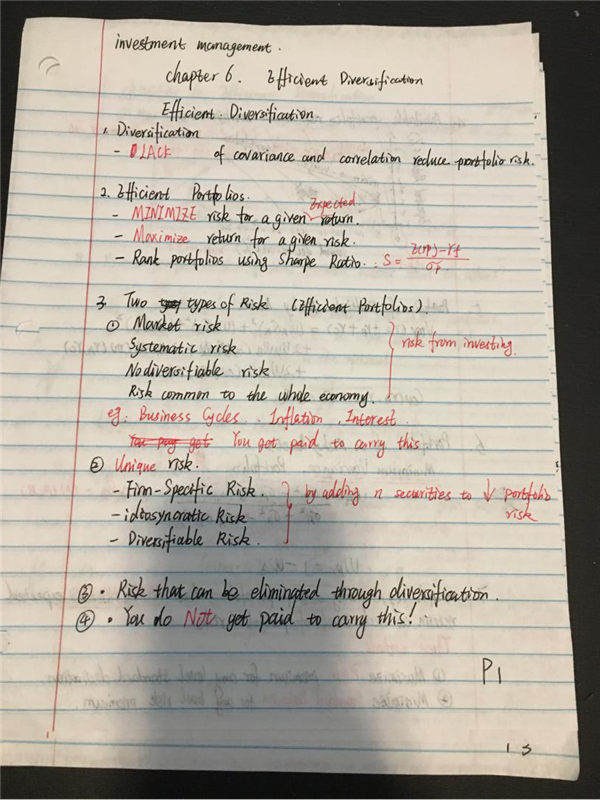 investment management.
chapter 6. Efficient Diversification
Efficient. Diversification.
1. Diversification
- LACK of covariance and correlation reduce portfolio risk.
2. Efficient Portfolios.
- MINIMIZE risk for a given Expected return.
- Maximize return for a given risk.
- Rank portfolios using Sharpe Ratio. S = E(rp) - rf / σp
3. Two types of Risk (Efficient Portfolios).
① Market risk
Systematic risk
Nodiversifiable risk
risk from investing.
Risk common to the whole economy.
eg. Business Cycles. Inflation, Interest
You pay get You got paid to carry this.
② Unique risk.
- Firm-Specific Risk.
- idiosyncratic Risk
- Diversifiable Risk.
by adding n securities to ↓ portfolio
risk
③ • Risk that can be eliminated through diversification.
④ • You do Not get paid to carry this!
P1